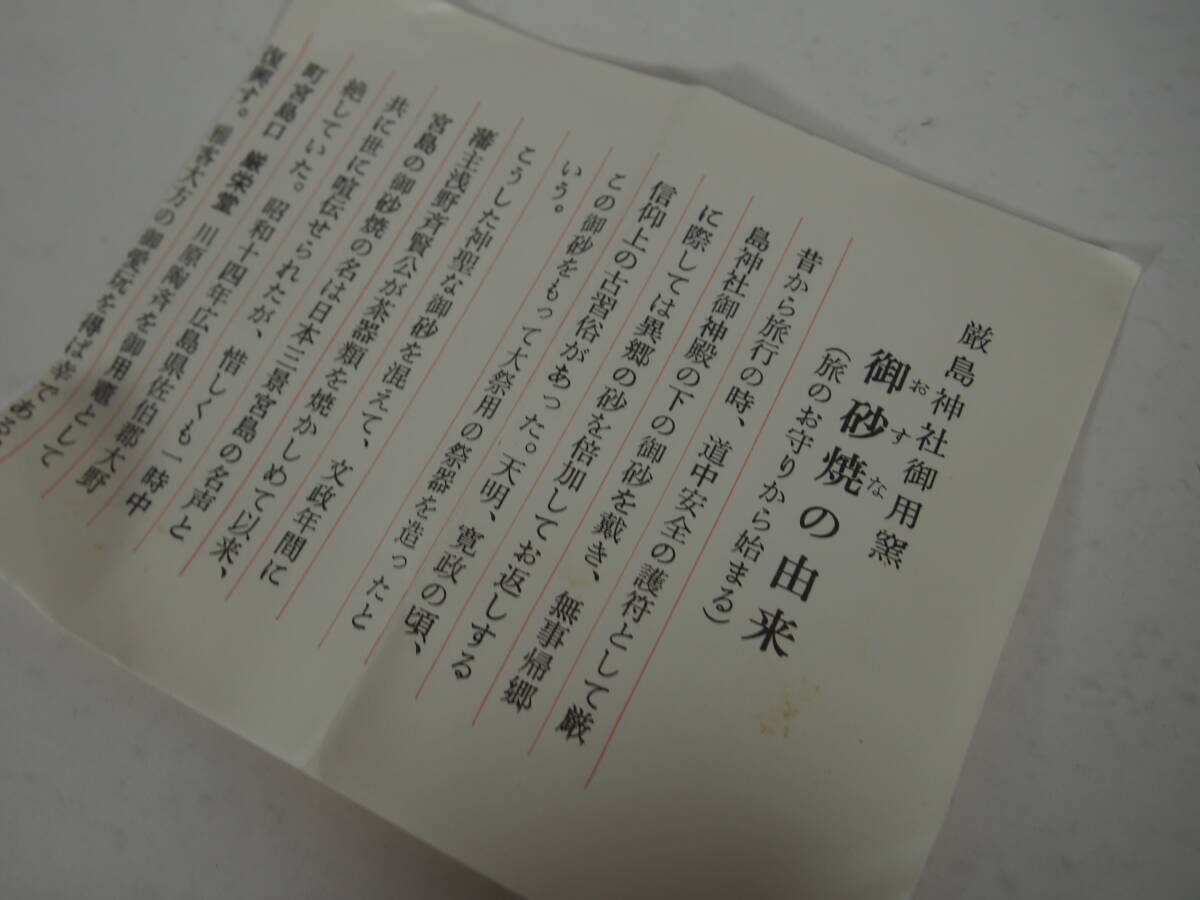 厳島神社御用窯
御砂焼の由来
おすな
（旅のお守りから始まる）
昔から旅行の時、道中安全の護符として厳
島神社御神殿の下の御砂を戴き、無事帰郷
に際しては異郷の砂を倍加してお返しする
信仰上の古習俗があった。天明、寛政の頃、
この御砂をもって大祭用の祭器を造ったと
いう。
こうした神聖な御砂を混えて、文政年間に
藩主浅野斉賢公が茶器類を焼かしめて以来、
宮島の御砂焼の名は日本三景宮島の名声と
共に世に喧伝せられたが、惜しくも一時中
絶していた。昭和十四年広島県佐伯郡大野
町宮島口 厳栄堂 川原陶斉を御用竃として
復興す。雅客大方の御愛玩を得ば幸である。